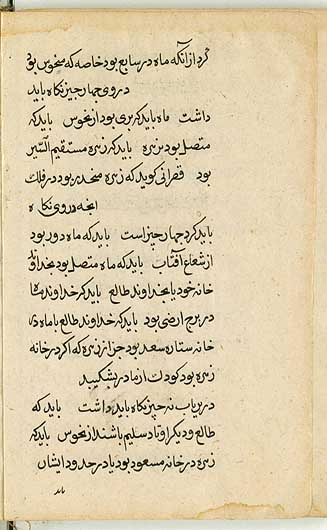 کرد از آنکه ماه در سابع بود خاصه که منحوس بود
در روی چهار چیز نکاه باید
داشت ماه باید که بری بود از نحوس باید که
متصل بود بزهره باید که زهره مستقیم السیر
بود قصرانی کوید که زهره منحدر بود در فلک
انجه در وی نکاه
باید کرد چهار چیز است باید که ماه دور بود
از شعاع آفتاب باید که ماه متصل بود بخداوند
خانه خود یا بخداوند طالع باید که خداوند ماه
در برج ارضی بود باید که خداوند طالع با ماه در
خانه ستاره سعد بود جز از زهره که اکر در خانه
زهره بود کودک از مادر بشکیبد
در یرباب نه چیز نکاه باید داشت باید که
طالع و دیکر اوتاد سلیم باشند از نحوس باید که
زهره در خانه مسعود بود یا در حدود ایشان
باید